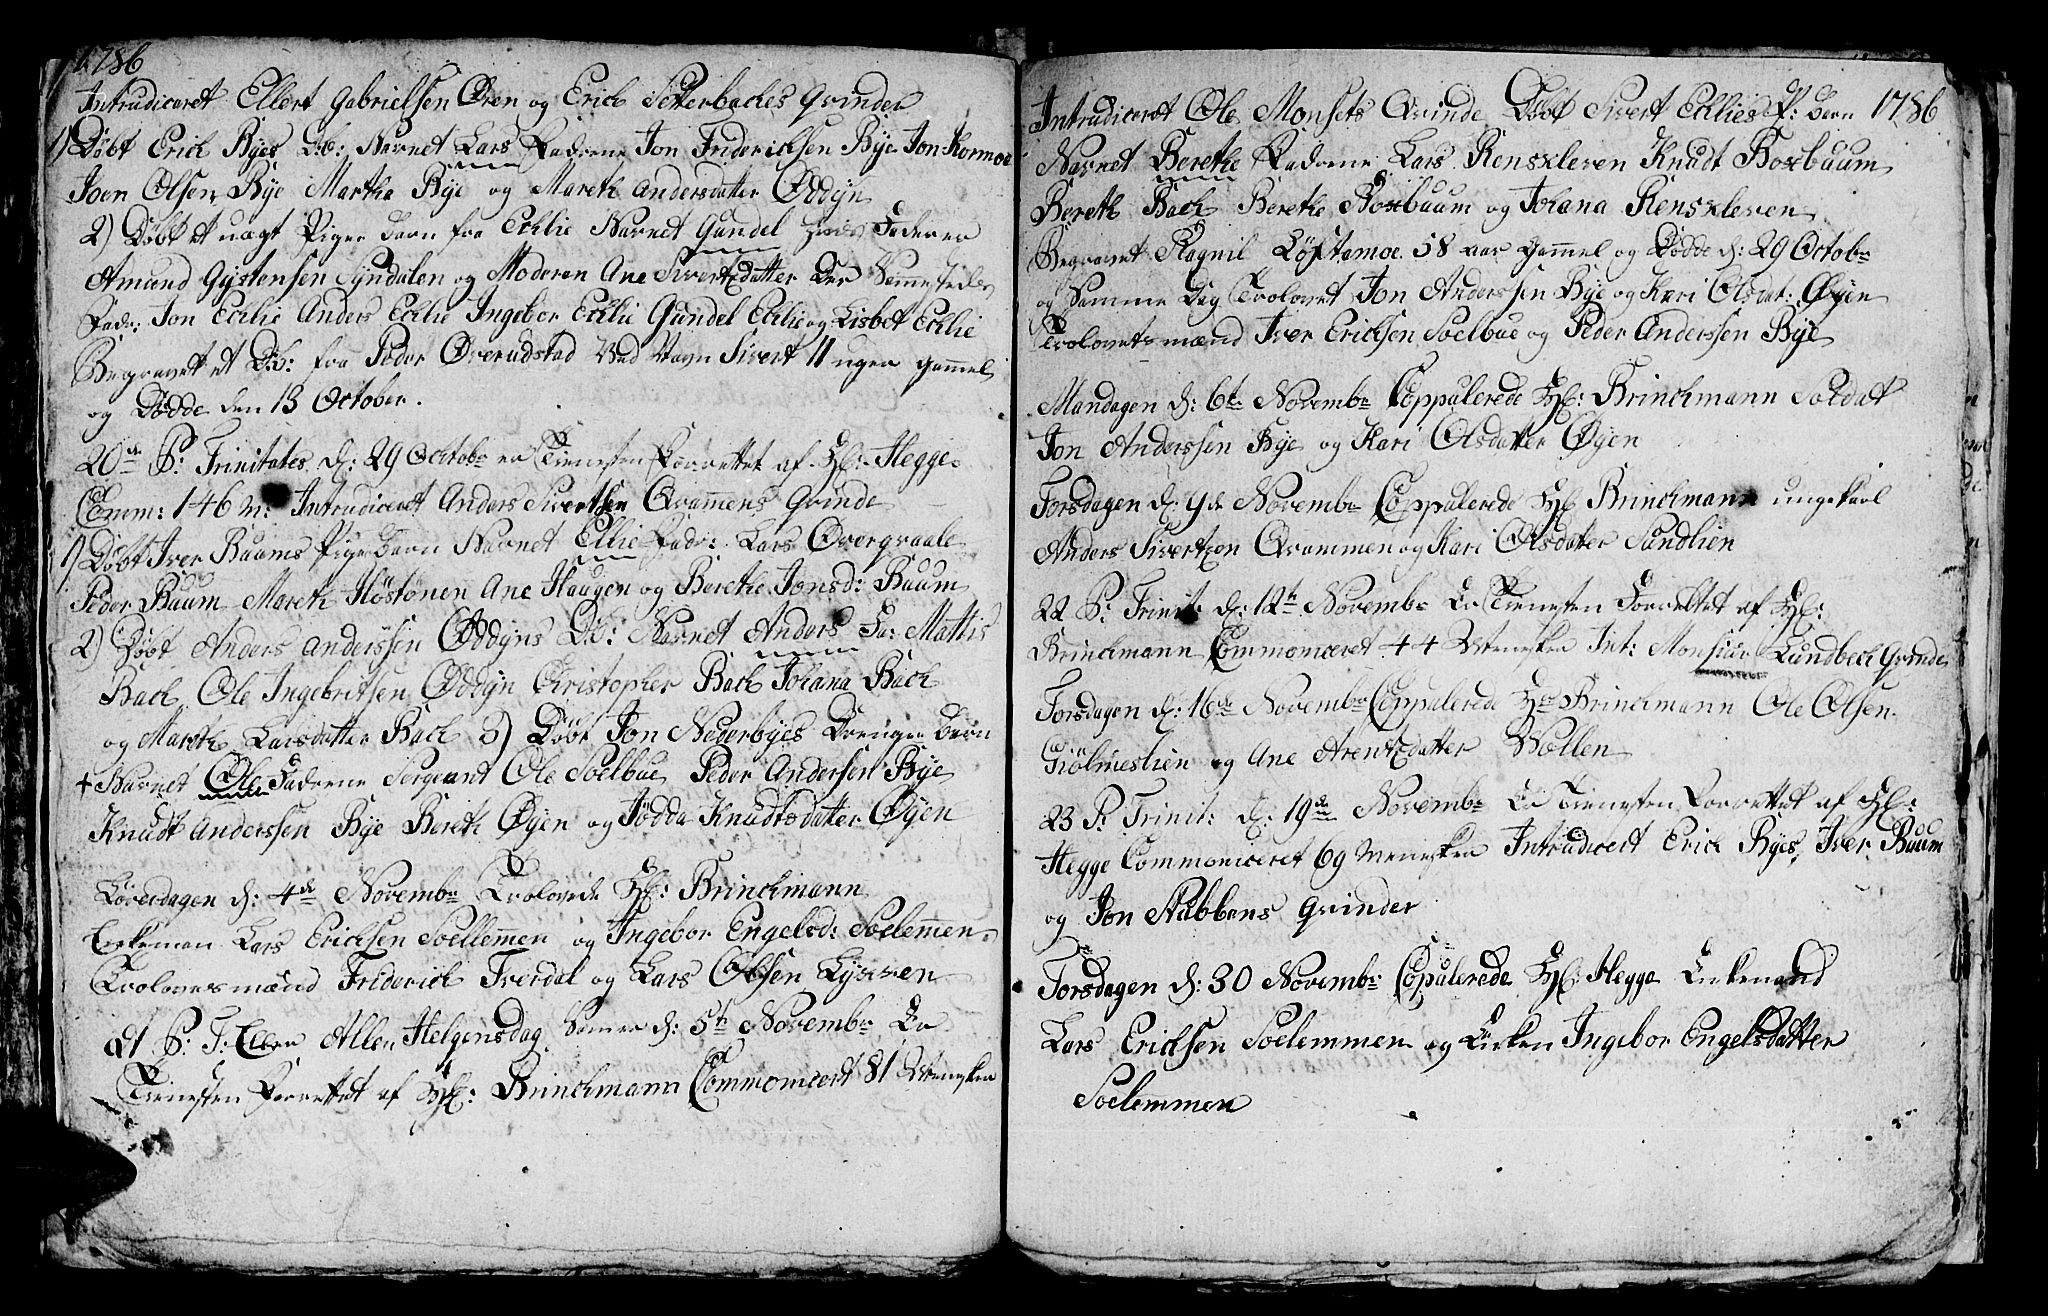 1786
Intrudiceret Ellert Gabrielsen Øren og Erick Setterbackes Qvinder
1) Døbt Erick Byes D:b: Navnet Lars Fadderne Jon Friderichsen Bye Jon Kormoe
Joen Olsen Bye Martha Bye og Mareth Andersdatter Oddyn
2) Døbt et uægt Pige barn fra Ecklie Navnet Gundel Fader er
Amund Gystensen Syndalen og Moderen Ane Sivertzdatter Der Sammestedes
Fadr: Jon Ecklie Anders Ecklie Ingebor Ecklie Gundel Ecklie og Lisbet Ecklie
Begravet et D:b: fra Peder Overudstad Ved Navn Sivert 11 uger gammel
og Døde den 13 October.
20de P: Trinitates d: 29 Octobr er Tienesten Forrettet af Hr: Hegge
Comm: 146 m: Intrudiceret Anders Sivertsen Qvammens Qvinde
1) Døbt Iver Baums Pigebarn Navnet Ellie Fadr: Lars Overgraale
Peder Buum Mareth Høstønen Ane Haugen og Berethe Jonsd: Buum
2) Døbt Anders Anderssen Oddyns D:b: Navnet Anders Fa: Mattis
Bach Ole Ingebritsen Oddyn Christopher Bach Johana Bach
og Mareth Larsdatter Bach 3) Døbt Jon Nederbyes Drenge barn
+ Navnet Ole Fadderne Sergeant Ole Soelbue Peder Andersen Bye
Knudt Anderssen Bye Bereth Øyen og Jødda Knudtsdatter Øyen
Løverdagen d: 4de Novembr Trolovede Hr: Brinchmann
Enkeman Lars Ericksen Soellemmen og Ingebor Engelsd: Soelemmen
Trolovesmænd Friderick Tverdal og Lars Olsen Lysven
21 P: T: Eller Allen Helgensdag Samme d: 5te Novembr Er
Tienesten Forrettet af Hr: Brinchmann Commoniceret 81 Mennesker
Intrudiceret Ole Monsets Qvinde Døbt Sivert Ecklies P: barn 1786
Navnet Berethe Fadderne Lars Rensxleven Knudt Boxbuum
Bereth Bach Berethe Boxbuum og Johana Rensxleven
Begravet Ragnil Løfstamoe 58 aar gammel og Døde d: 29 Octobr
og Samme Dag Trolovet Jon Anderssen Bye og Kari Olsdat: Øyen
Trolovetsmænd Iver Ericksen Soelbue og Peder Anderssen Bye
Mandagen d: 6te Novembr Coppulerede Hr: Brinchmann Soldat
Jon Anderssen Bye og Kari Olsdatter Øyen
Torsdagen d: 9de Novembr Coppulerede Hr Brinchmann ungekarl
Anders Sivertzen Qvammen og Kari Olsdatter Sandlien
22 P: Trinit: d: 12te Novembr Er Tienesten Forrettet af Hr:
Brinchmann Commoniceret 44 Mennesker Int: Monsiur Lundbeck Qvinde
Torsdagen d: 16de Novembr Coppulerede Hr Brinchmann Ole Olsen
Giølmeslien og Ane Arentzdatter Wollen
23 P: Trinit: d: 19de Novembr Er Tienesten Forrettet af Hr:
Hegge Commoniceret 69 Mennesker Intrudicert Erick Byes, Iver Buum
og Jon Stubbens Qvinder
Torsdagen d: 30 Novembr Copulerede Hr: Hegge Enkemand
Lars Ericksen Soelemmen og Enken Ingebor Engelsdatter
Soelemmen